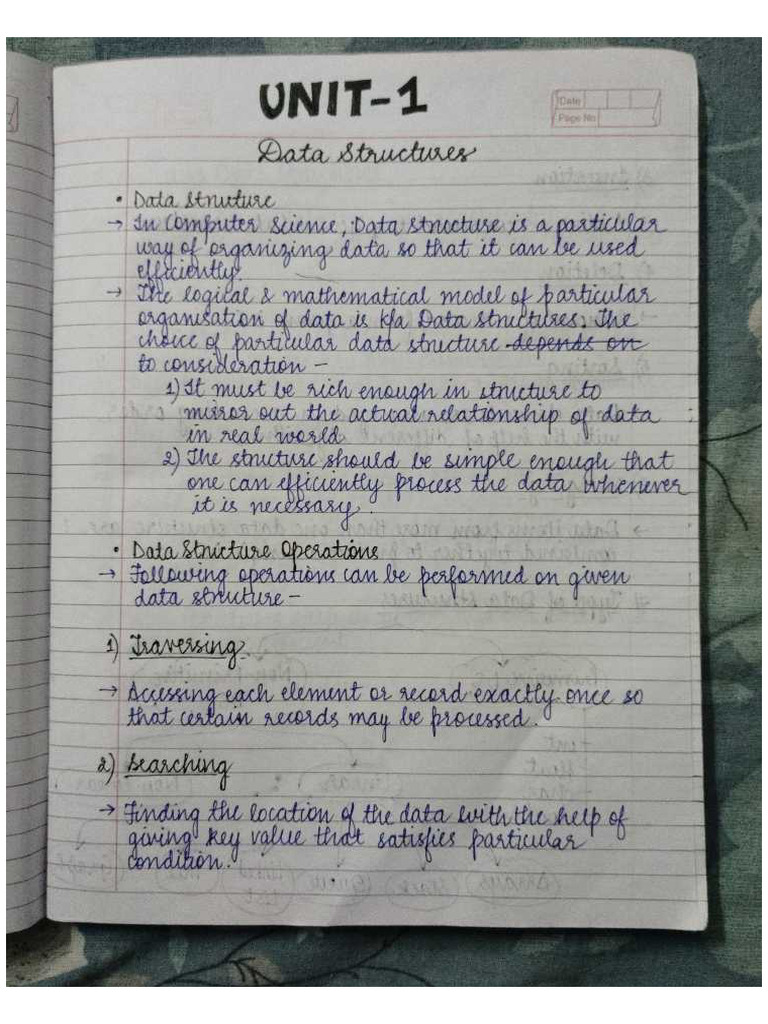 UNIT-1
Date
Page No
Data Structures
• Data Structure
→ In Computer Science, Data structure is a particular
way of organizing data so that it can be used
efficiently.
→ The logical & mathematical model of particular
organisation of data is k/a Data structures. The
choice of particular data structure depends on
to consideration –
1) It must be rich enough in structure to
mirror out the actual relationship of data
in real world
2) The structure should be simple enough that
one can efficiently process the data whenever
it is necessary.
• Data Structure Operations
→ Following operations can be performed on given
data structure –
1) Traversing
→ Accessing each element or record exactly once so
that certain records may be processed.
2) Searching
→ Finding the location of the data with the help of
giving key value that satisfies particular
condition.